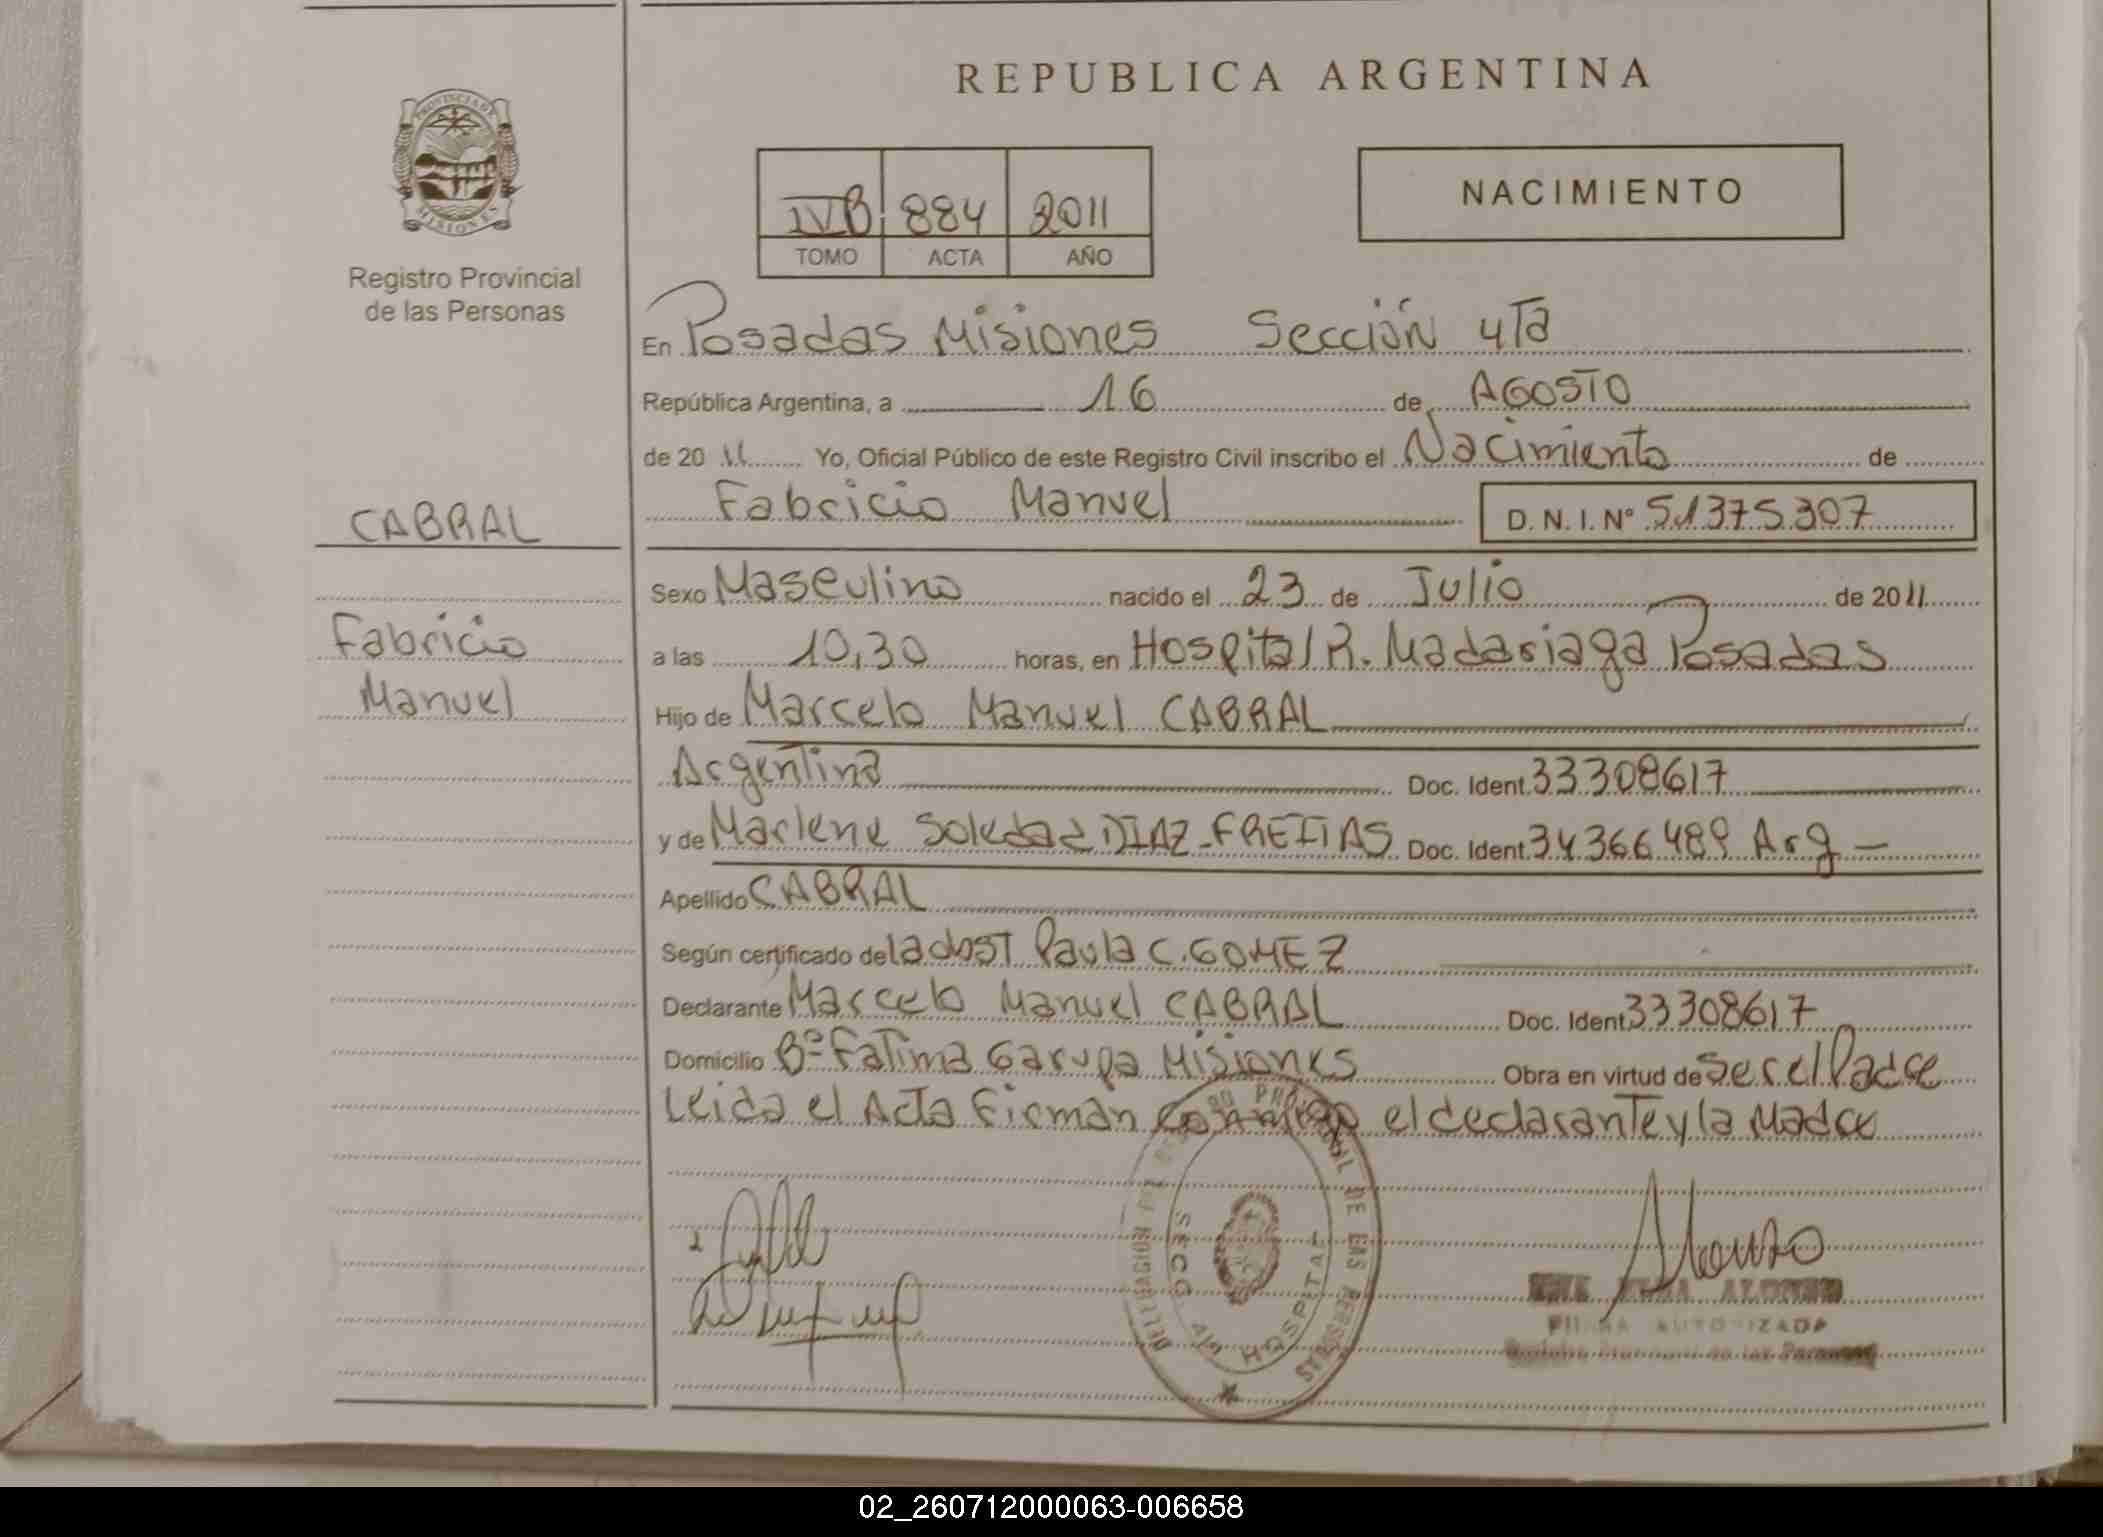 REPUBLICA ARGENTINA
PROVINCIA DE
MISIONES
Registro Provincial
de las Personas
IVB 884 2011
TOMO ACTA AÑO
NACIMIENTO
En Posadas Misiones Sección 4Ta
República Argentina, a 16 de AGOSTO
de 20 11 Yo, Oficial Público de este Registro Civil inscribo el Nacimiento de
Fabricio Manuel D. N. I. Nº 51375307
CABRAL
Fabricio
Manuel
Sexo Masculino nacido el 23 de Julio de 2011
a las 10,30 horas, en Hospital R. Madariaga Posadas
Hijo de Marcelo Manuel CABRAL
Argentina Doc. Ident. 33308617
y de Marlene Soledad DIAZ-FREITAS Doc. Ident. 34366489 Arg -
Apellido CABRAL
Según certificado de la obst Paula C. GOMEZ
Declarante Marcelo Manuel CABRAL Doc. Ident 33308617
Domicilio Bº Fatima Garupa Misiones Obra en virtud de ser el Padre
Leida el Acta Firman conmigo el declarante y la Madre
PROVINCIAL DE LAS PERSONAS
DELEGACION
SECC 4ta HOSPITAL
Alonzo
FIRMA AUTORIZADA
Registro Provincial de las Personas
02_260712000063-006658